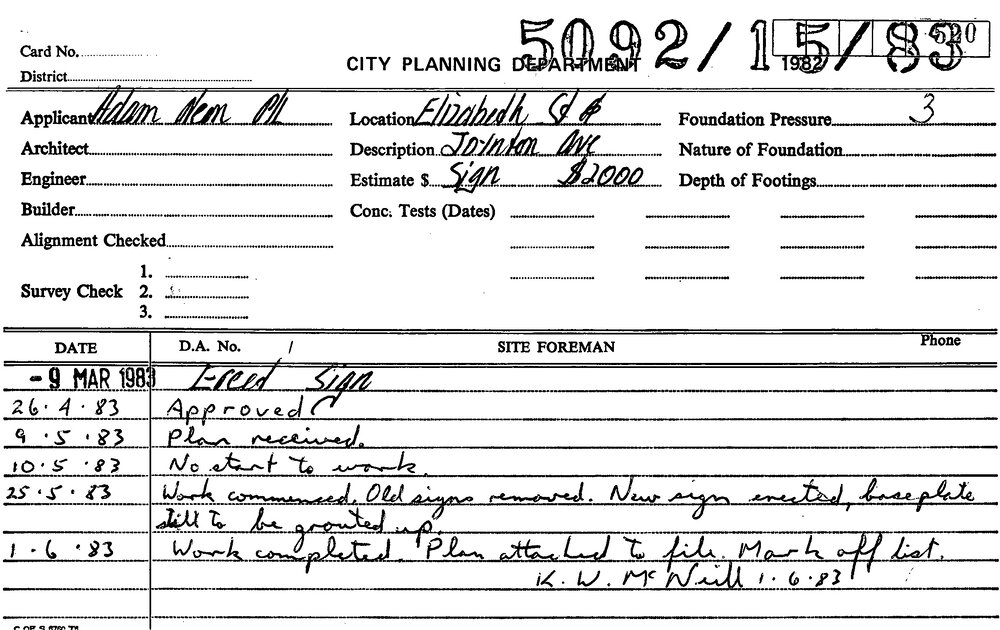 5092/15/83
520
Card No.
CITY PLANNING DEPARTMENT 1982
District
Applicant Adam Nem P/L Location Elizabeth St & Foundation Pressure 3
Architect Description Joynton Ave Nature of Foundation
Engineer Estimate $ Sign $2000 Depth of Footings
Builder Conc. Tests (Dates)
Alignment Checked
1.
Survey Check 2.
3.
DATE D.A. No. / SITE FOREMAN Phone
- 9 MAR 1983 Erect Sign
26.4.83 Approved
9.5.83 Plan received.
10.5.83 No start to work.
25.5.83 Work commenced. Old signs removed. New sign erected, baseplate
still to be grouted up.
1.6.83 Work completed. Plan attached to file. Mark off list.
K. W. McNeill 1.6.83